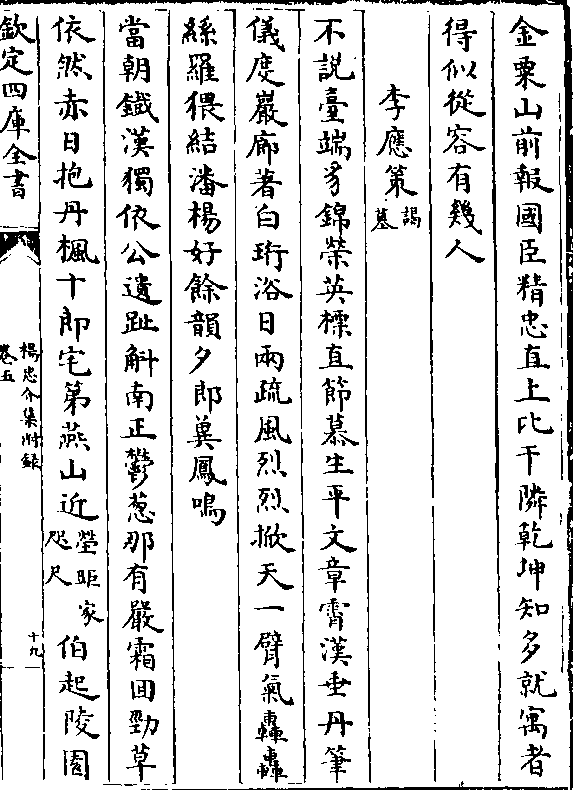 金粟山前報國臣精忠直上比干隣乾坤知多就寓者
得似從容有幾人
李應策謁墓
不說臺端豸錦榮英標直節慕生平文章霄漢垂丹筆
儀度巖廊著白珩浴日兩疏風烈烈掀天一臂氣轟轟
絲羅猥結潘楊好餘韻夕郎冀鳳鳴
當朝鐵漢獨依公遺趾斛南正鬱葱那有嚴霜囬勁草
依然赤日抱丹楓十郎宅第燕山近塋距家咫尺伯起陵園
欽定四庫全書
楊忠介集附録
卷五
十九